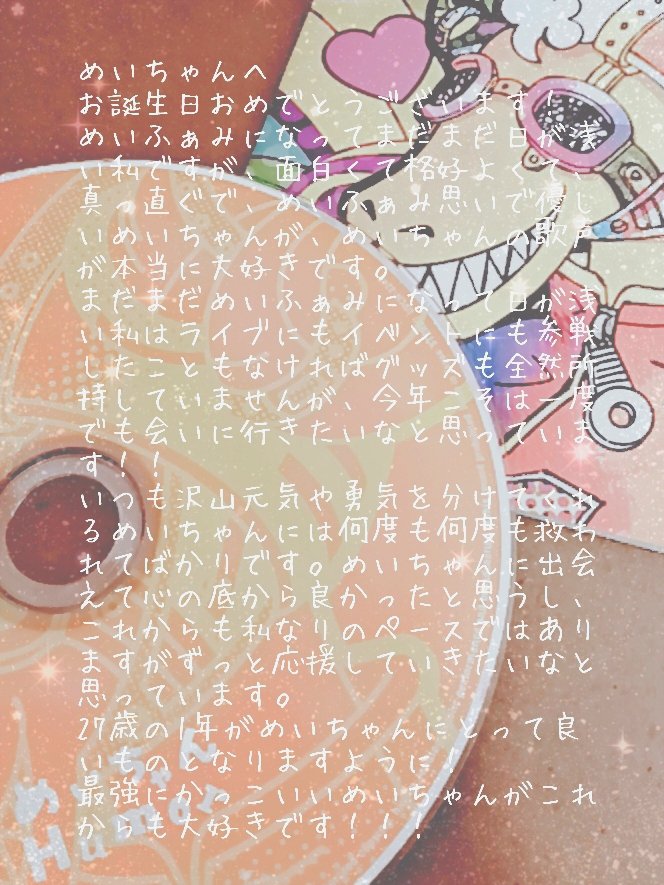 めいちゃんへ
お誕生日おめでとうございます！
めいふぁみになってまだまだ日が浅
い私ですが、面白くて格好よくて、
真っ直ぐで、めいふぁみ思いで優し
いめいちゃんが、めいちゃんの歌声
が本当に大好きです。
まだまだめいふぁみになって日が浅
い私はライブにもイベントにも参戦
したこともなければグッズも全然所
持していませんが、今年こそは一度
でも会いに行きたいなと思っていま
す！！
いつも沢山元気や勇気を分けてくれ
るめいちゃんには何度も何度も救わ
れてばかりです。めいちゃんに出会
えて心の底から良かったと思うし、
これからも私なりのペースではあり
ますがずっと応援していきたいなと
思っています。
27歳の1年がめいちゃんにとって良
いものとなりますように！
最強にかっこいいめいちゃんがこれ
からも大好きです！！！